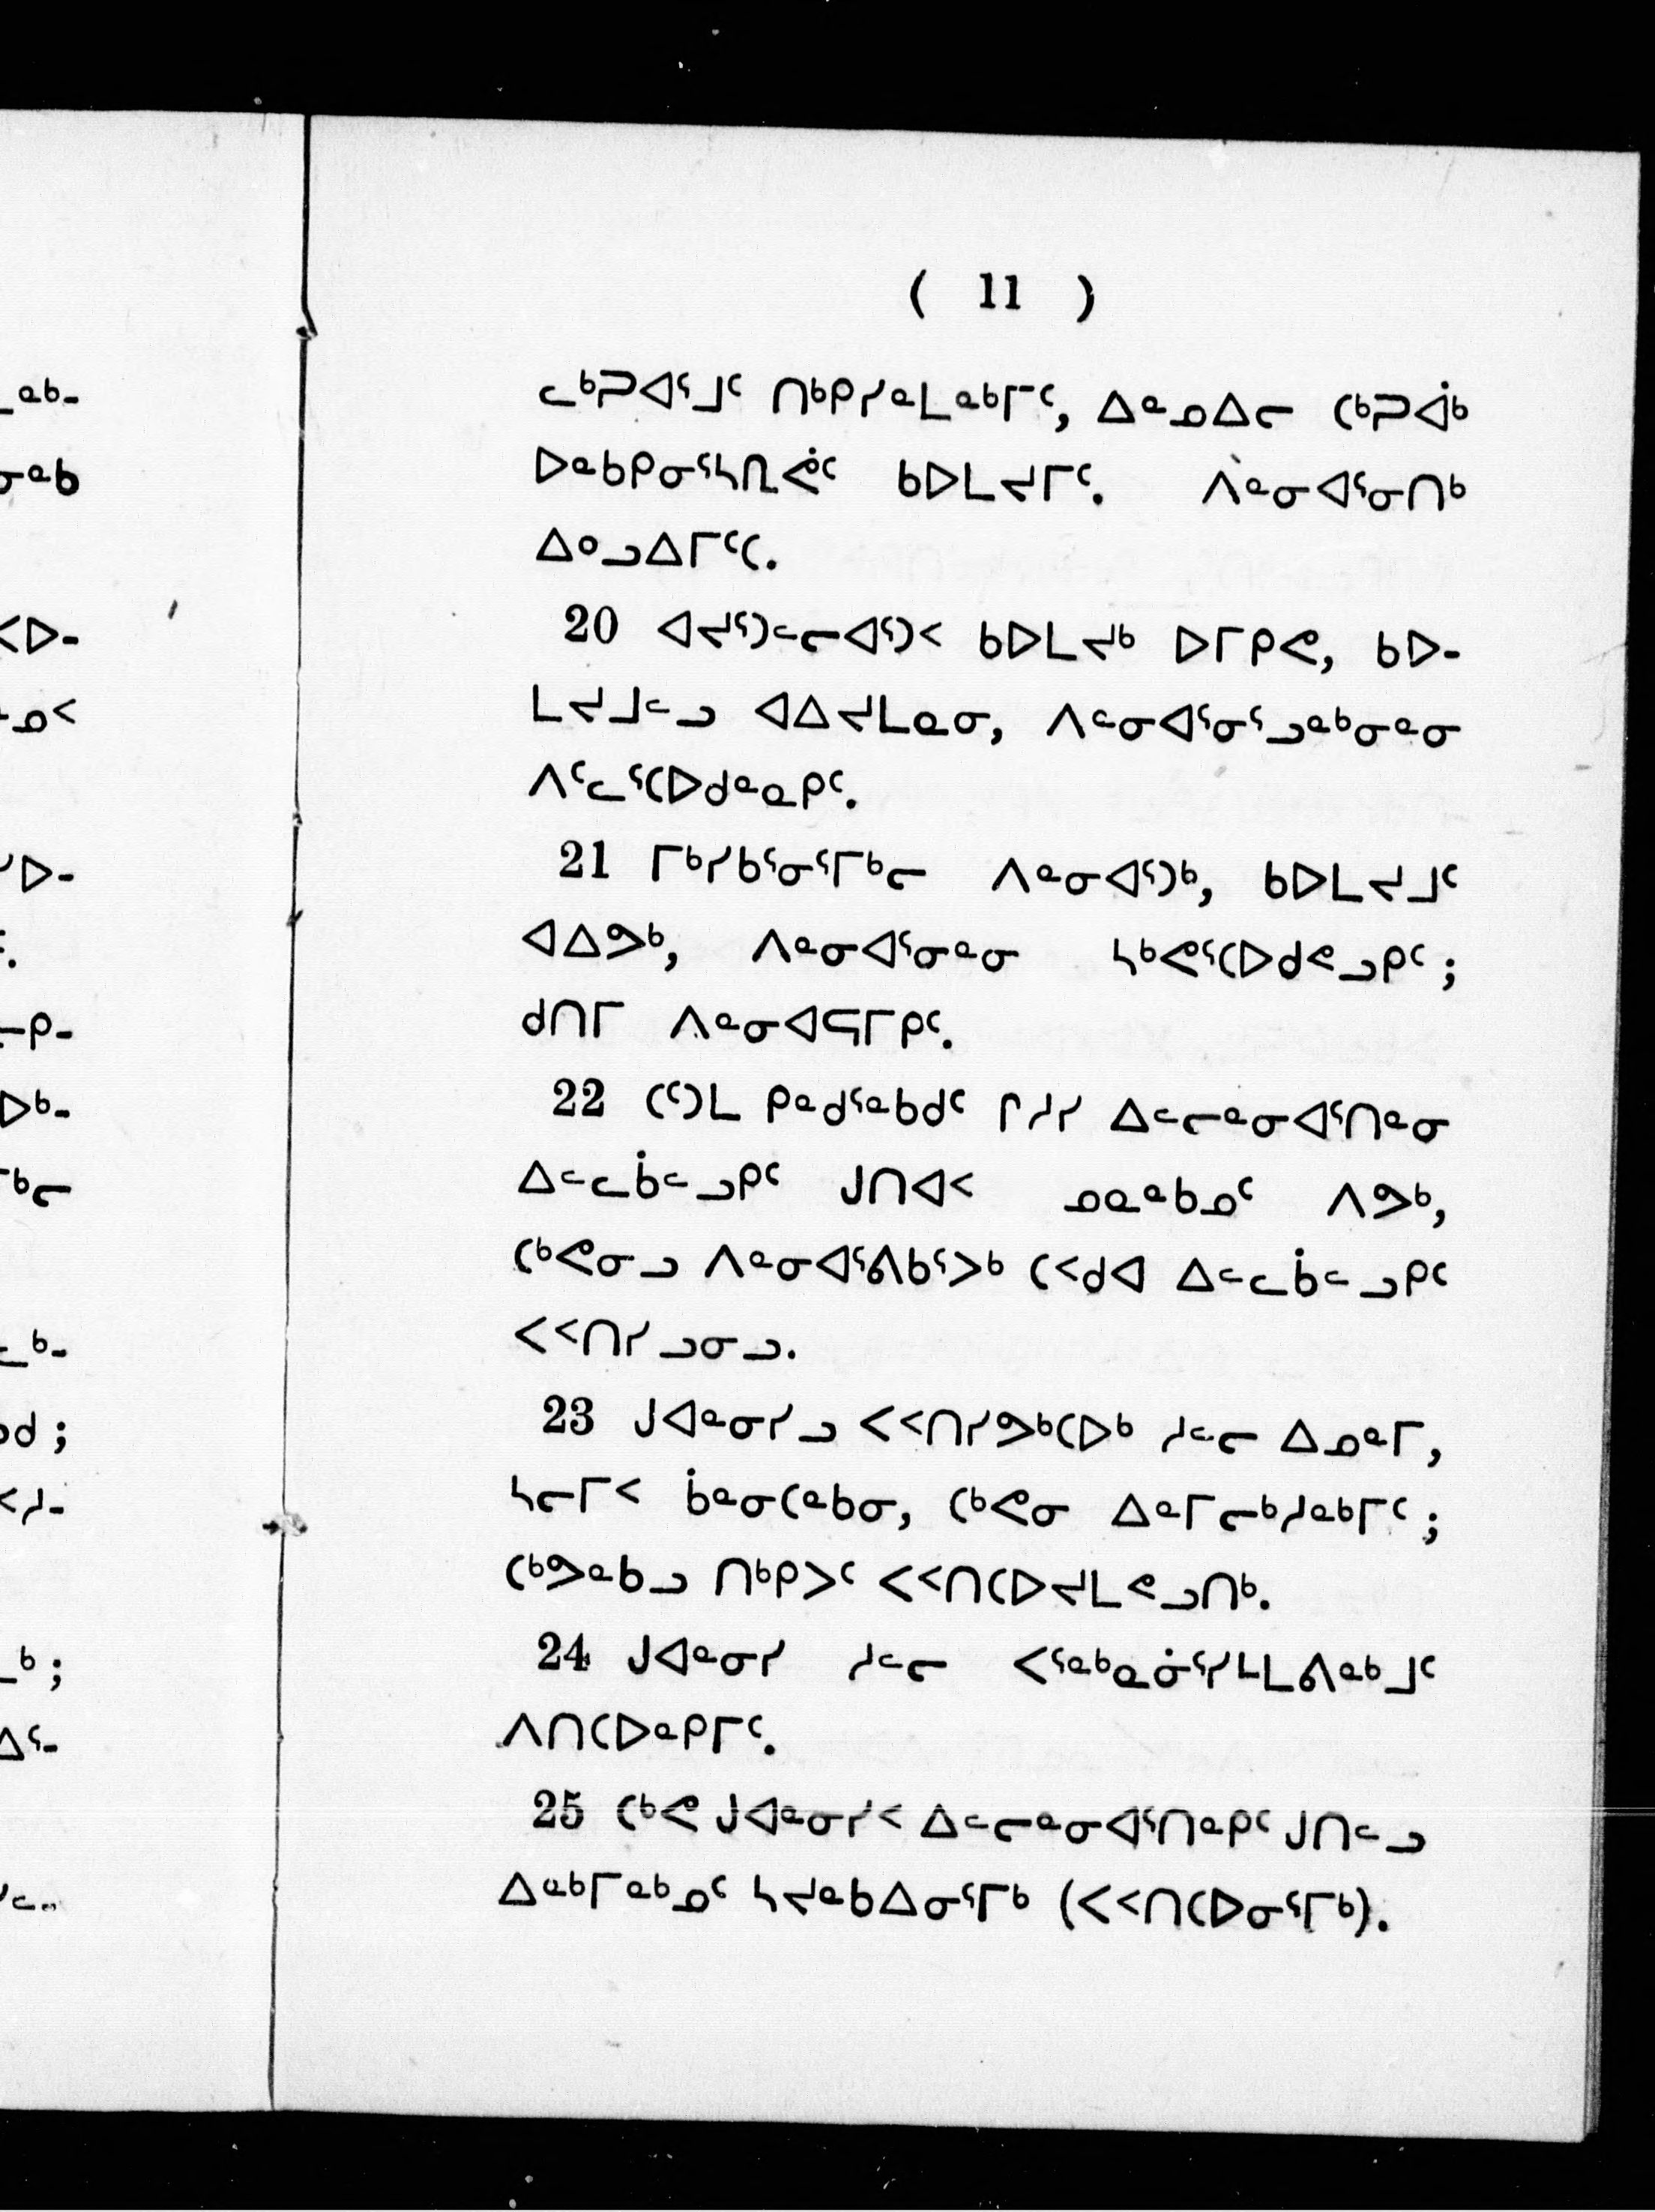 ( 11 )
ᓚᒃᑐᐊᕐᒧᑦ ᑎᒃᑭᓯᓐᒪᓐᒃᒥᑦ, ᐃᓐᓄᐃᓕ ᑕᒃᑐᐋᒃ
ᐅᓐᑲᑭᓂᕐᓴᕇᕚᑦ ᑲᐅᒪᔪᒥᑦ. ᐱᓐᓂᐊᕐᓂᑎᒃ
ᐃᐤᓗᐃᒥᑦᑕ.
20 ᐊᔪᕐᑐᓪᓕᐊᕐᑐᑉ ᑲᐅᒪᔪᒃ ᐅᒥᑭᕙ, ᑲᐅ-
ᒪᔪᒧᓪᓗ ᐊᐃᔪᒪᓇᓂ, ᐱᓪᓂᐊᕐᓂᕐᓗᓐᒃᓂᓐᓂ
ᐱᑦᓚᕐᑕᐅᑯᓐᓇᑭᑦ.
21 ᒥᒃᓯᑲᕐᓂᕐᒥᒃᓕ ᐱᓐᓂᐊᕐᑐᒃ, ᑲᐅᒪᔪᒧᑦ
ᐊᐃᕗᒃ, ᐱᓐᓂᐊᕐᓂᓐᓂ ᓴᒃᕙᕐᑕᐅᑯᕝᓗᑭᑦ;
ᑯᑎᒥ ᐱᓐᓂᐊᕋᒥᑭᑦ.
22 ᑕᑦᑐᒪ ᑭᓐᑯᕐᓐᑲᑯᑦ ᒋᓱᓯ ᐃᓪᓕᓐᓂᐊᕐᑎᓐᓂ
ᐃᓪᓚᑳᓪᓗᑭᑦ ᒍᑎᐊᑉ ᓄᓇᓐᑲᓄᑦ ᐱᕗᒃ,
ᑕᒃᕙᓂᓗ ᐱᓐᓂᐊᕐᕕᑲᕐᐳᒃ ᑕᑉᑯᐊ ᐃᓪᓚᑳᓪᓗᑭᑦ
ᐸᑉᑎᓯᓗᓂᓗ.
23 ᒍᐊᓐᓂᓯᓗ ᐸᑉᑎᓯᕗᒃᑕᐅᒃ ᓱᓪᓕ ᐃᓄᓐᒥ,
ᓴᓕᒥᑉ ᑳᓐᓂᑕᓐᑲᓂ, ᑕᒃᕙᓂ ᐃᓐᒥᓕᒃᓱᓐᒃᒥᑦ;
ᑕᒃᕗᓐᑲᓗ ᑎᒃᑭᐳᑦ ᐸᑉᑎᑕᐅᔪᒪᕝᓗᑎᒃ.
24 ᒍᐊᓐᓂᓯ ᓱᓪᓕ ᐸᕐᓐᒃᓇᓃᕐᓯᒻᒪᕕᓐᒃᒧᑦ
ᐱᑎᑕᐅᓐᑭᒥᑦ.
25 ᑕᒃᕙ ᒍᐊᓐᓂᓯᑉ ᐃᓪᓕᓐᓂᐊᕐᑎᓐᑭᑦ ᒍᑎᓪᓗ
ᐃᓐᒃᒥᓐᒃᓄᑦ ᓴᔪᓐᑲᐃᓂᕐᒥᒃ (ᐸᑉᑎᑕᐅᓂᕐᒥᒃ).